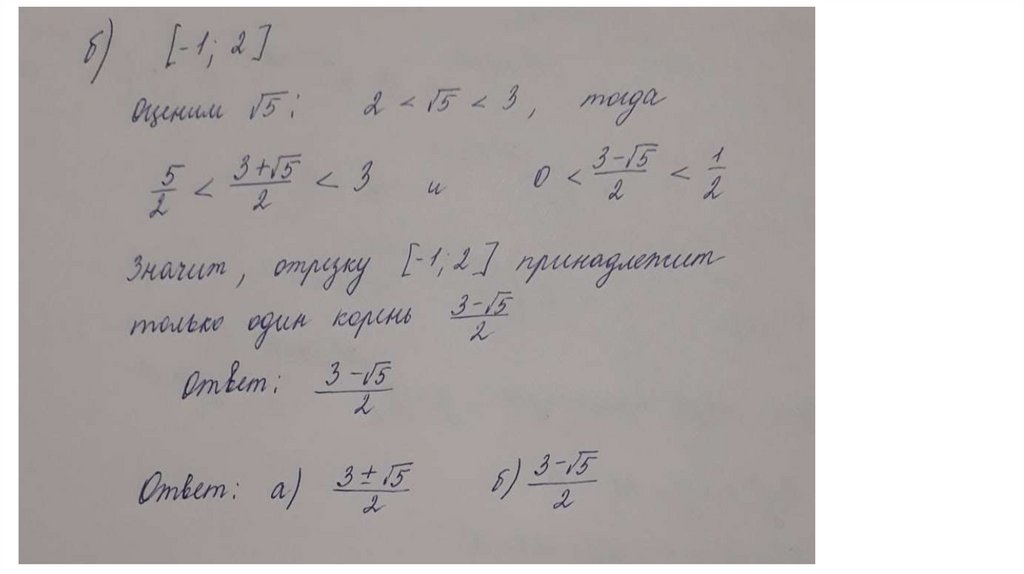 б) [-1; 2]
оценим √5: 2 < √5 < 3, тогда
5/2 < (3+√5)/2 < 3 и 0 < (3-√5)/2 < 1/2
Значит, отрезку [-1; 2] принадлежит
только один корень (3-√5)/2
Ответ: (3-√5)/2
Ответ: а) (3±√5)/2 б) (3-√5)/2